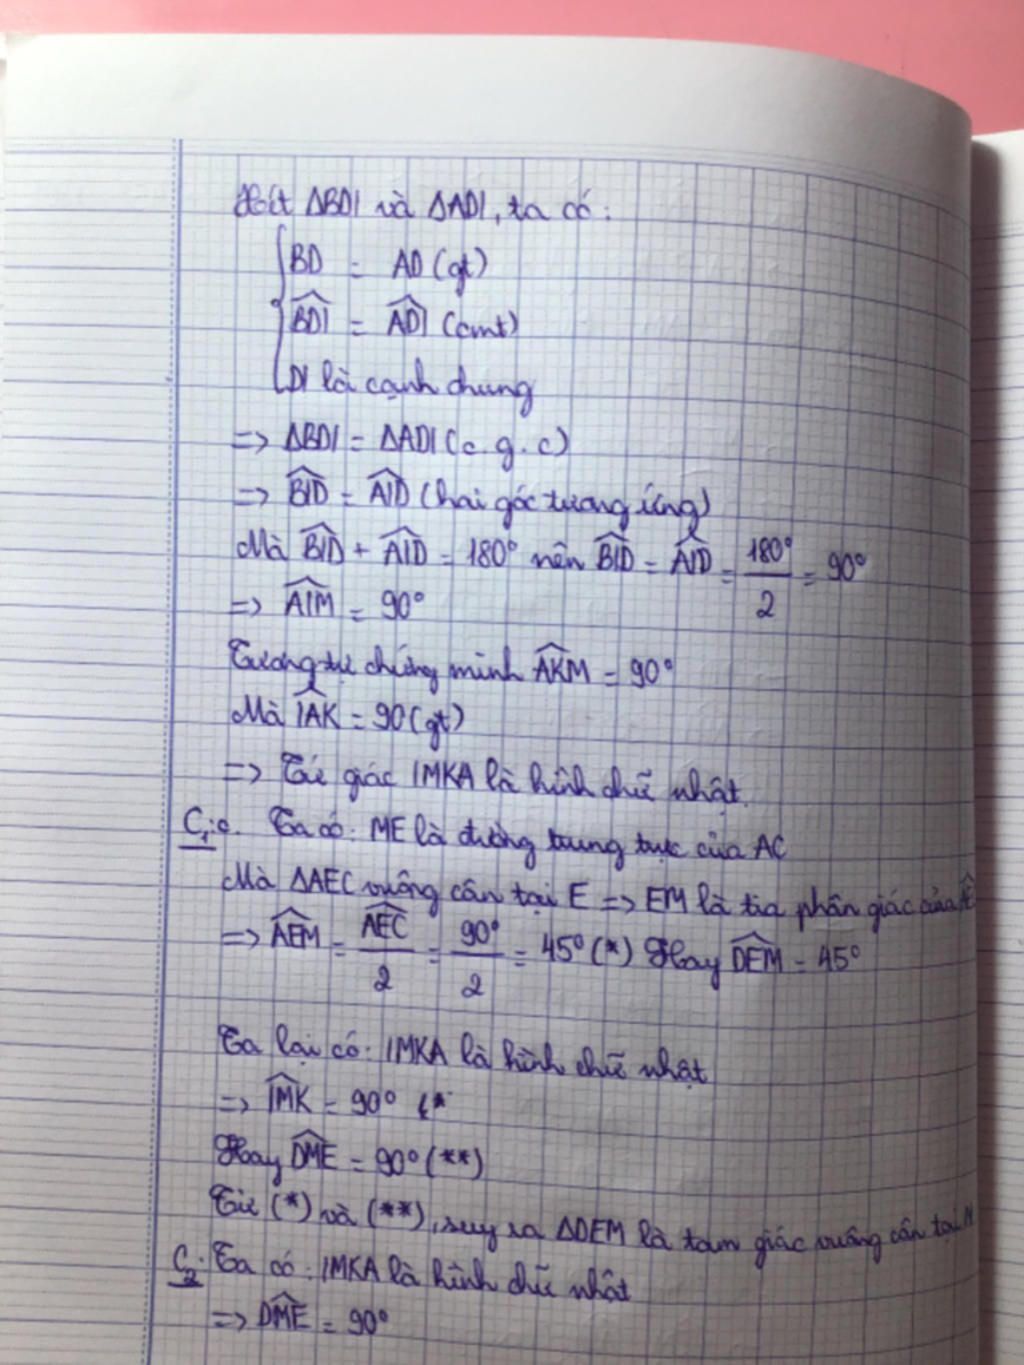 Xét ΔBDI và ΔADI, ta có:
BD = AD (gt)
BDI^ = ADI^ (cmt)
DI là cạnh chung
=> ΔBDI = ΔADI (c.g.c)
=> BID^ = AID^ (hai góc tương ứng)
Mà BID^ + AID^ = 180° nên BID^ = AID^ = 180°/2 = 90°
=> AIM^ = 90°
Tương tự chứng minh AKM^ = 90°
Mà IAK^ = 90 (gt)
=> Tứ giác IMKA là hình chữ nhật.
C1: c. Ta có: ME là đường trung trực của AC
Mà ΔAEC vuông cân tại E => EM là tia phân giác của
=> AEM^ = AEC^/2 = 90°/2 = 45° (*) Hay DEM^ = 45°
Ta lại có: IMKA là hình chữ nhật
=> IMK^ = 90° (*
Hay DME^ = 90° (**)
Từ (*) và (**), suy ra ΔDEM là tam giác vuông cân tại M
C2: Ta có: IMKA là hình chữ nhật
=> DME^ = 90°